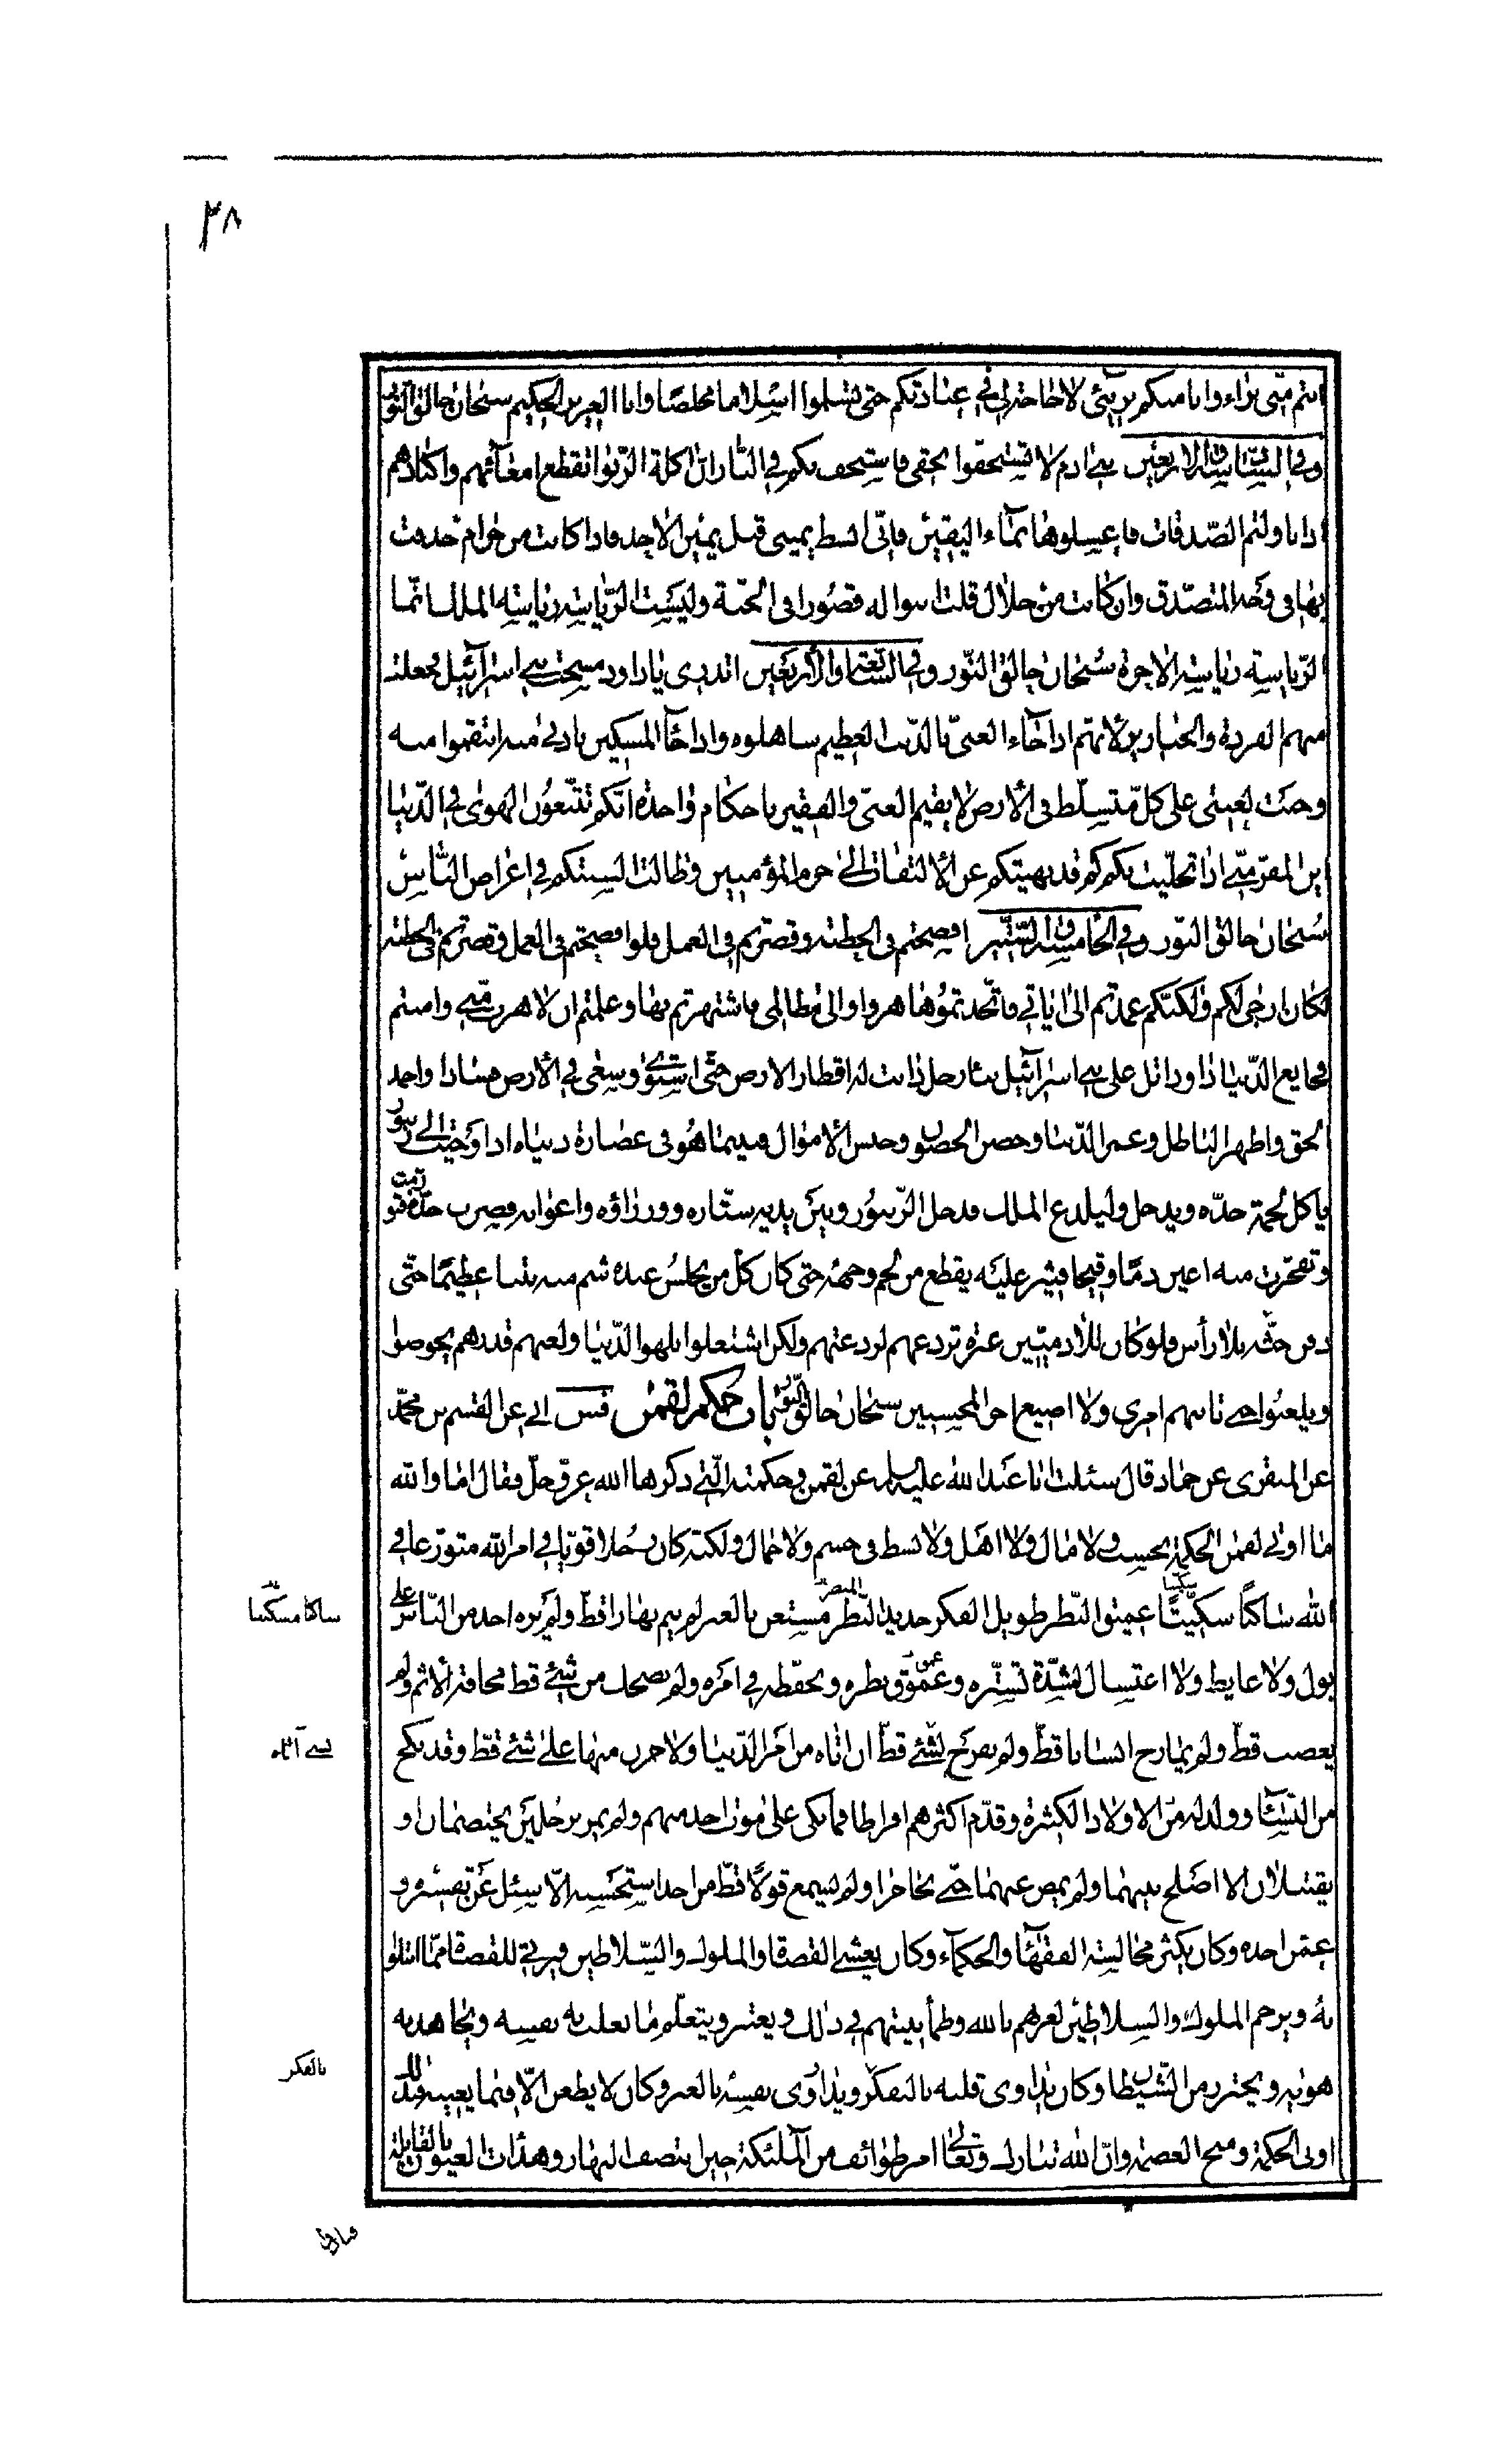 ٣٨
انتم منّي براء وانا منكم بريئ لا حاجة لي في عبادتكم حتى تسلموا اسلاما مخلصا وانا العزيز الحكيم سبحان خالق النور
وفي السادسة والاربعين بني ادم لا تستخفوا بحقي فاستخف بكم في النار ان اكلة الربوا تقطع امعائهم واكبادهم
اذا ناولتم الصّدقات فاغسلوها بماء اليقين فانّي ابسط يميني قبل يمين الاخذ فاذا كانت من حرام حذفت
بها في وجه المتصدق وان كانت من حلال قلت ابنوا له قصورا في الجنّة وليست الرّياسة رياسة الملك انّما
الرّياسة رياسة الاخرة سبحان خالق النّور وفي السابعة والأربعين اتدري يا داود لم مسخت بني اسرآئيل فجعلت
منهم القردة والخنازير لأنهم اذا جاء الغنيّ بالذّنب العظيم ساهلوه واذا جآء المسكين بادنى منه انتقموا منه
وجبت لعنتي على كلّ متسلّط في الأرض لا يقيم الغنيّ والفقير باحكام واحدة انّكم تتّبعون الهوى في الدّنيا
اين المفرّ منّي اذا تخلّيت بكم كم قد نهيتكم عن الألتفات الى حرم المؤمنين وطالت السنتكم في اعراض النّاس
سبحان خالق النّور وفي الخامسة والستّين افصحتم في الخطبة وقصرتم في العمل فلو افصحتم في العمل وقصرتم في الخطبة
لكان ارجى لكم ولكنّكم عمدتم الى اياتي فاتّخذتموها هزوا والى مظالمي فاشتهرتم بها وعلمتم ان لا هرب منّي وامنتم
فجايع الدّنيا داود اتل على بني اسرآئيل نبأ رجل دانت له اقطار الارض حتّى استوى وسعى في الأرض فسادا واخمد
الحق واظهر الباطل وعمر الدّنيا وحصن الحصون وحبس الأموال فبينما هو في غضارة دنياه اذ اوحيت الى زنبور
يأكل لحمة خدّه ويدخل وليلدغ الملك فدخل الزّنبور وبين يديه ستّاره ووزراؤه واعوانه فضرب خدّه فتورمت
وتفجّرت منه اعين دمّا وقيحا فيثر عليه يقطع من لحم وجهه حتى كان كل من يجلس عنده شم منه نتنا عظيما حتّى
دفن جثّة بلا رأس فلو كان للادميّين عبرة تردعهم لردعتهم ولكن اشتغلوا بلهو الدّنيا ولعبهم فذرهم يخوضوا
ويلعبوا حتى يأتيهم امري ولا اضيع اجر المحسنين سبحان خالق النّور باب حكم لقمن فس ابي عن القسم بن محمّد
عن المنقري عن حماد قال سئلت ابا عبد الله عليه السلام عن لقمن وحكمته الّتي ذكرها الله عزّ وجلّ فقال اما والله
ما اوتي لقمن الحكمة بحسب ولا مال ولا اهل ولا بسط في جسم ولا جمال ولكنّه كان رجلا قويّا في امر الله متورّعا في
الله ساكتاً سكّيتاً عميق النّظر طويل الفكر حديد النّظر مستعبر بالعبر لم ينم نهارا قطّ ولم يره احد من النّاس على
سكينا
البصر
ساكنا مسكينا
بول ولا غايط ولا اغتسال لشدّة تستّره وعموق نظره وتحفّظه في امره ولم يضحك من شئ قط مخافة الأثم ولم
عمق
يغضب قطّ ولم يمازح انسانا قطّ ولم يفرح لشئ قطّ ان اتاه من امر الدّنيا ولا حزن منها على شئ قطّ وقد نكح
بشئ اتاه
من النّسآء وولد له من الاولاد الكثيرة وقدّم اكثرهم افراطا فما بكى على موت احد منهم ولم يمر برجلين يختصمان او
يقتتلان الا اصلح بينهما ولم يمض عنهما حتّى تحاجزا ولم يسمع قولاً قطّ من احد استحسنه الّا سئل عن تفسيره و
عمّن اخذه وكان يكثر مجالسة الفقهآء والحكمآء وكان يغشى القضاة والملوك والسّلاطين فيرثي للقضاة ممّا ابتلوا
به ويرحم الملوك والسلاطين لعزهم بالله وطمأنينتهم في ذلك ويعتبر ويتعلّم ما يغلب به نفسه ويجاهد به
هواه ويحترز من الشّيطان وكان يداوي قلبه بالتفكر ويداوي نفسه بالعبر وكان لا يظعن الّا فيما يعنيه فبذلك
بالفكر
اوتي الحكمة ومنح العصمة وانّ الله تبارك وتعالى امر طوائف من الملئكة حين انتصف النهار وهدأت العيون بالقايلة
فنادوا